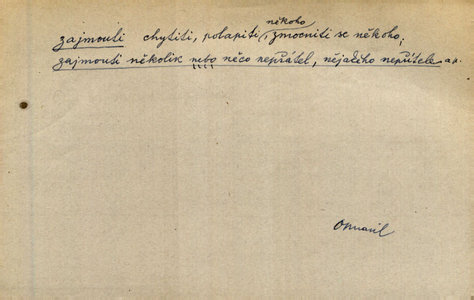 někoho
zajmouti chytiti, polapiti, zmocniti se někoho;
zajmouti několik nebo něčo nepřátel, nějakého nepřítele ap.